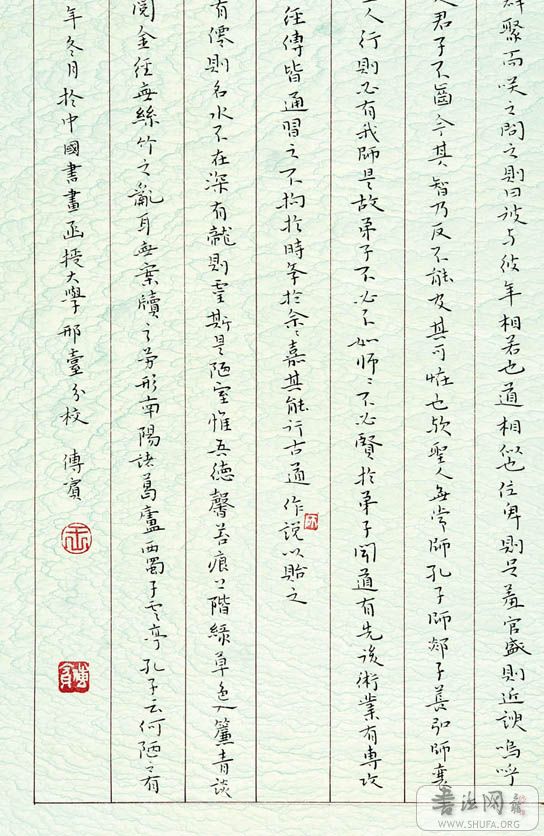 群聚而咲之問之則曰彼与彼年相若也道相似也位卑則足羞官盛則近諛嗚呼
君子不齒今其智乃反不能及其可恠也歟聖人無常師孔子師郯子萇弘師襄
人行則必有我師是故弟子不必不如師々不必賢於弟子聞道有先後術業有專攻
經傳皆通習之不拘於時筆於余々嘉其能行古道作說以貽之
有僊則名水不在深有龍則靈斯是陋室惟吾德馨苔痕上階綠草色入簾青談
閱金經無絲竹之亂耳無案牘之勞形南陽諸葛廬西蜀子雲亭孔子云何陋之有
年冬月於中國書畫函授大學邢臺分校 傅賓
書法网
WWW.SHUFA.ORG